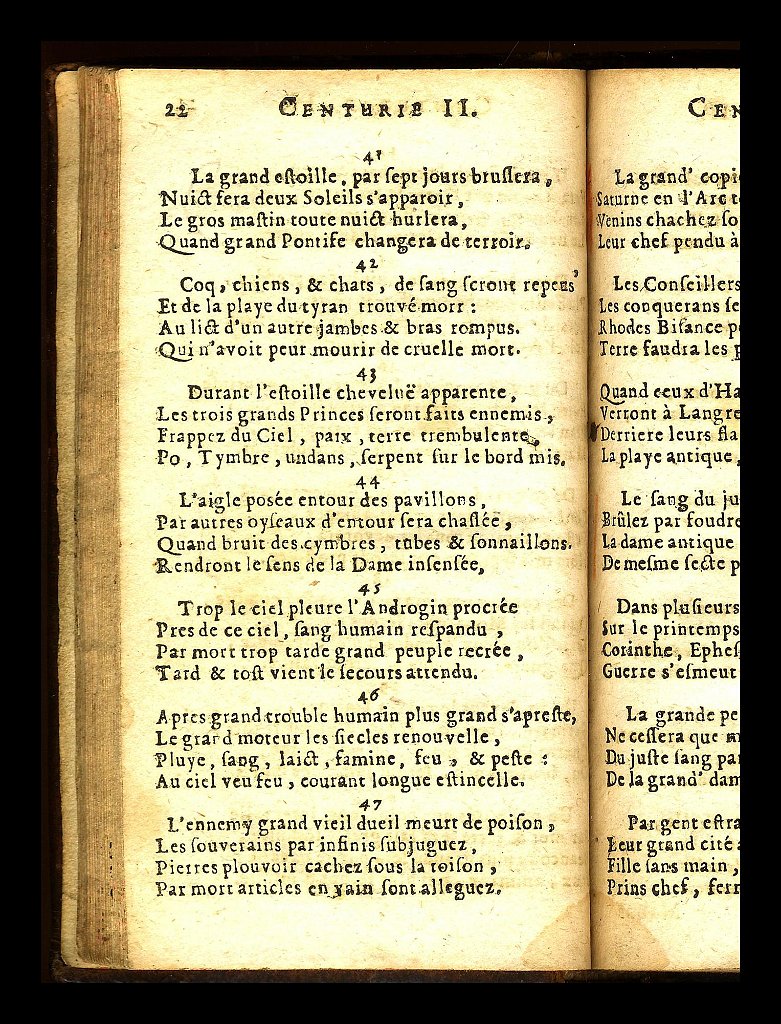 22 CENTURIE II.
41
La grand eſtoille, par ſept jours bruſlera,
Nuict fera deux Soleils s'apparoir,
Le gros maſtin toute nuict hurlera,
Quand grand Pontife changera de terroir.
42
Coq, chiens, & chats, de ſang ſeront repeus,
Et de la playe du tyran trouvé morr :
Au lict d'un autre jambes & bras rompus.
Qui n'avoit peur mourir de cruelle mort.
43
Durant l'eſtoille cheveluë apparente,
Les trois grands Princes ſeront faits ennemis,
Frappez du Ciel, paix, terre trembulente,
Po, Tymbre, undans, ſerpent ſur le bord mis.
44
L'aigle posée entour des pavillons,
Par autres oyſeaux d'entour ſera chaſlée,
Quand bruit des cymbres, tubes & ſonnaillons.
Rendront le ſens de la Dame inſensée,
45
Trop le ciel pleure l'Androgin procrée
Pres de ce ciel, ſang humain reſpandu,
Par mort trop tarde grand peuple recrée,
Tard & toſt vient le ſecours attendu.
46
Apres grand trouble humain plus grand s'apreſte,
Le grand moteur les ſiecles renouvelle,
Pluye, ſang, laict, famine, feu, & peſte :
Au ciel veu feu, courant longue eſtincelle.
47
L'ennemy grand vieil dueil meurt de poiſon,
Les ſouverains par infinis ſubjuguez,
Pierres plouvoir cachez ſous la toiſon,
Par mort articles en vain ſont alleguez.
CEN
La grand' copi
Saturne en l'Arc t
Venins chachez ſo
Leur chef pendu à
Les Conſeillers
Les conquerans ſe
Rhodes Biſance p
Terre faudra les p
Quand ceux d'Ha
Verront à Langre
Derriere leurs fla
La playe antique,
Le ſang du ju
Brûlez par foudre
La dame antique
De meſme ſecte p
Dans pluſieurs
Sur le printemps
Corinthe, Epheſ
Guerre s'eſmeut
La grande pe
Ne ceſſera que m
Du juſte ſang pa
De la grand' dam
Par gent eſtra
Leur grand cité
Fille ſans main,
Prins chef, ferr